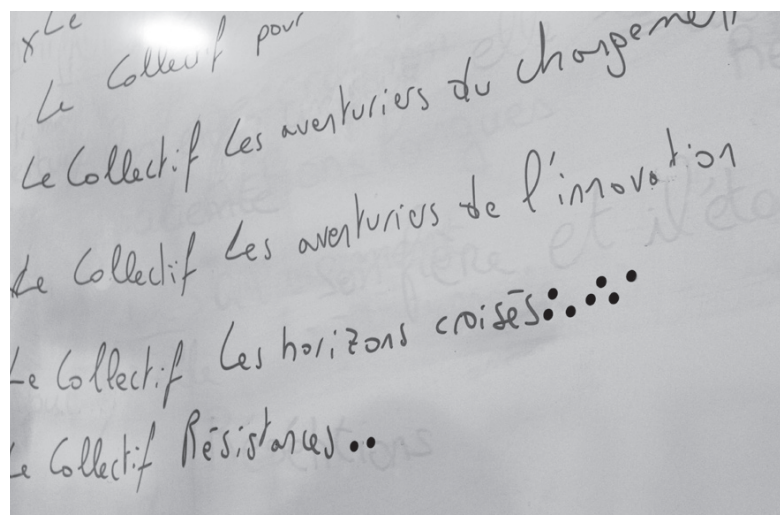 x Le
Le Collectif pour
Le Collectif Les aventuriers du changement
Le Collectif Les aventuriers de l'innovation
Le Collectif Les horizons croisés
Le Collectif Résistances